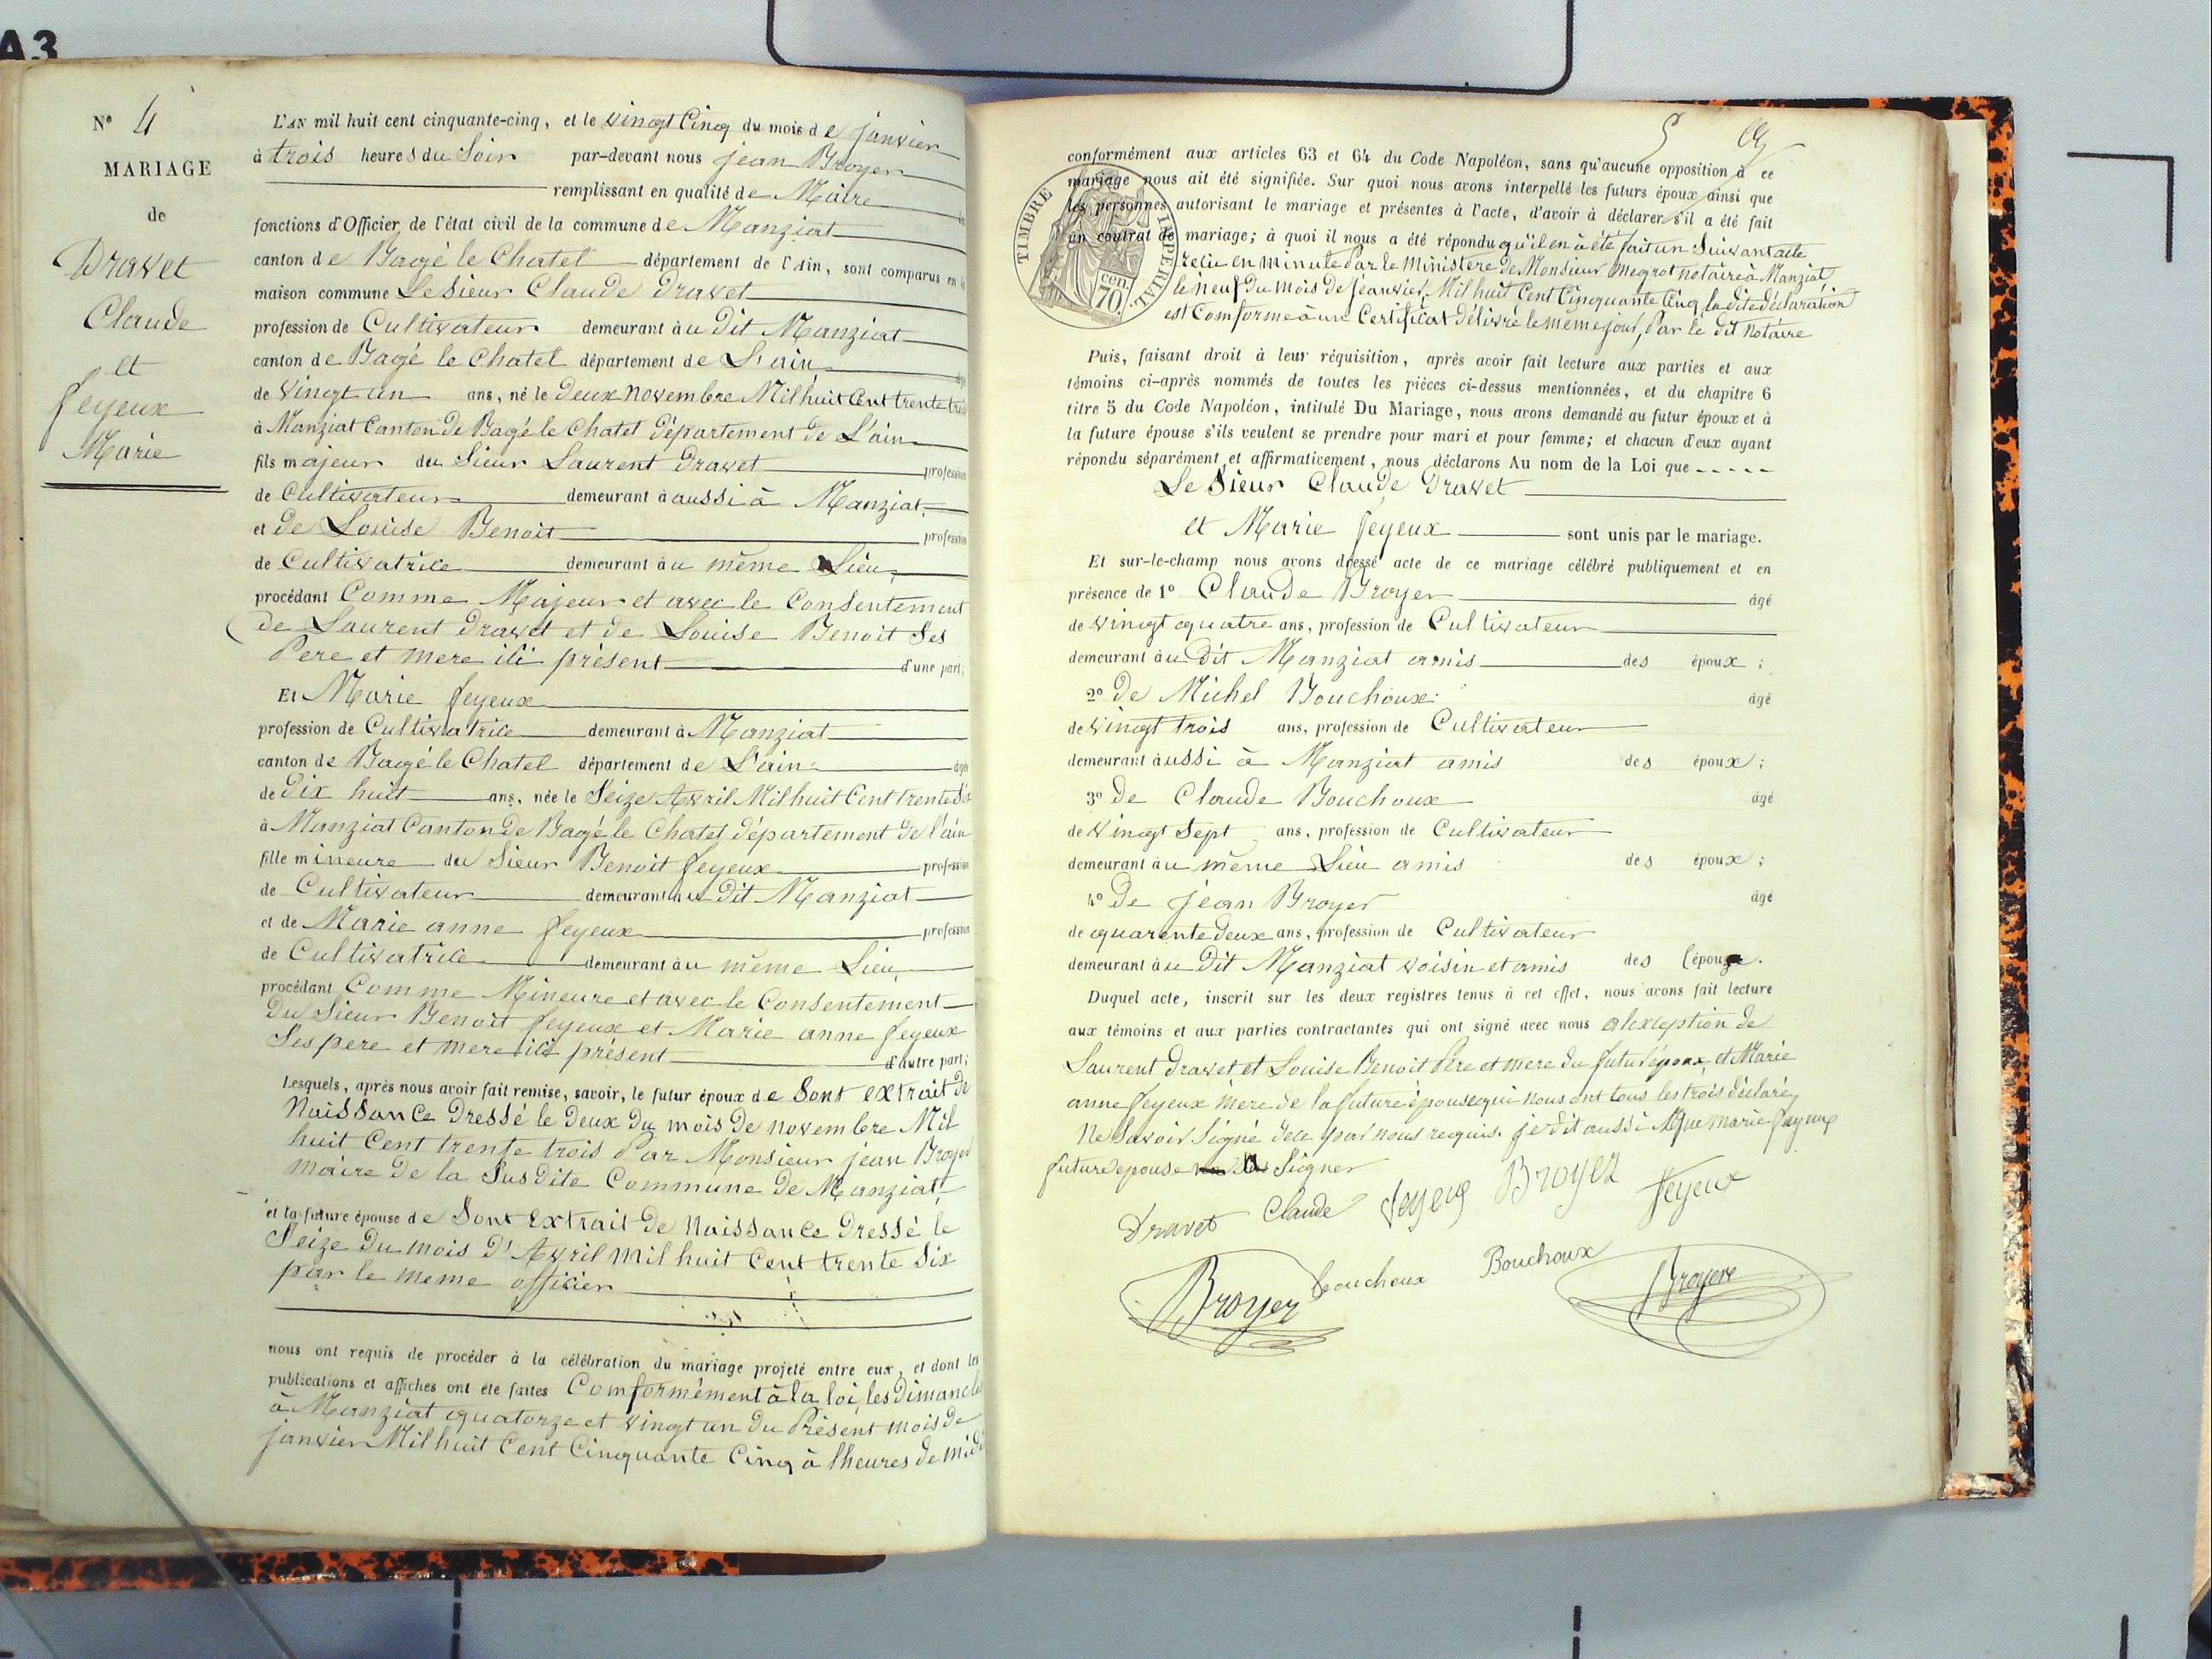 A3
N° 4
MARIAGE
de
Dravet
Claude
et
feyeux
Marie
L'AN mil huit cent cinquante-cinq, et le vingt Cinq du mois de janvier
à trois heures du Soir par-devant nous jean Broyer
remplissant en qualité de Maire
fonctions d'Officier de l'état civil de la commune de Manziat
canton de Bagé le Chatel département de l'Ain, sont comparus en la
maison commune Le Sieur Claude Dravet
profession de Cultivateur demeurant àu Dit Manziat
canton de Bagé le Chatel département de L'ain
de vingt un ans, né le Deux Novembre Mil huit Cent trente trois
à Manziat Canton De Bagé le Chatel département de L'ain
fils majeur du Sieur Laurent Dravet profession
de Cultivateur demeurant à aussi à Manziat
et de Louise Benoit profession
de Cultivatrice demeurant àu même Lieu
procédant Comme Majeur et avec le Consentement
De Laurent Dravet et de Louise Benoit Ses
Pere et mere ici présent d'une part;
Et Marie feyeux
profession de Cultivatrice demeurant à Manziat
canton de Bagé le Chatel département de L'ain âgée
de Dix huit ans, née le Seize Avril Mil huit Cent trente Six
à Manziat Canton De Bagé le Chatel département De l'ain
fille mineure du Sieur Benoit feyeux profession
de Cultivateur demeurant àu Dit Manziat
et de Marie anne feyeux profession
de Cultivatrice demeurant àu même Lieu
procédant Comme Mineure et avec le Consentement
Du Sieur Benoit feyeux et Marie anne feyeux
Ses pere et mere ici présent d'autre part;
Lesquels, après nous avoir fait remise, savoir, le futur époux de Sont extrait de
Naissance Dressé le Deux Du mois De novembre Mil
huit Cent trente trois Par Monsieur jean Broyer
maire De la Sus Dite Commune De Manziat
et la future épouse de Sont Extrait De Naissance Dressé le
Seize Du mois D'Avril mil huit Cent trente Six
par le meme officier
nous ont requis de procéder à la célébration du mariage projeté entre eux, et dont les
publications et affiches ont été faites Comformément à la loi, les Dimanches
à Manziat quatorze et vingt un Du Présent mois De
janvier Mil huit Cent Cinquante Cinq à lheures de midi
5
conformément aux articles 63 et 64 du Code Napoléon, sans qu'aucune opposition à ce
mariage nous ait été signifiée. Sur quoi nous avons interpellé les futurs époux ainsi que
les personnes autorisant le mariage et présentes à l'acte, d'avoir à déclarer s'il a été fait
un contrat de mariage; à quoi il nous a été répondu qu'il en à été fait un Suivant acte
TIMBRE IMPERIAL
70 cen.
recu en minute Par le Ministere De Monsieur Megrot notaire à Manziat
le neuf Du mois De Jeanvier Mil huit Cent Cinquante Cinq, la dite déclaration
est Comforme à un Certificat délivré le meme jour, Par le dit Notaire
Puis, faisant droit à leur réquisition, après avoir fait lecture aux parties et aux
témoins ci-après nommés de toutes les pièces ci-dessus mentionnées, et du chapitre 6
titre 5 du Code Napoléon, intitulé Du Mariage, nous avons demandé au futur époux et à
la future épouse s'ils veulent se prendre pour mari et pour femme; et chacun d'eux ayant
répondu séparément et affirmativement, nous déclarons Au nom de la Loi que - - - - -
Le Sieur Claude Dravet
et Marie feyeux sont unis par le mariage.
Et sur-le-champ nous avons dressé acte de ce mariage célébré publiquement et en
présence de 1° Claude Broyer âgé
de vingt quatre ans, profession de Cultivateur
demeurant àu Dit Manziat amis des époux;
2° De Michel Bouchoux âgé
de vingt trois ans, profession de Cultivateur
demeurant àussi à Manziat amis des époux;
3° De Claude Bouchoux âgé
de Vingt Sept ans, profession de Cultivateur
demeurant àu même Lieu amis des époux;
4° De jean Broyer âgé
de quarente Deux ans, profession de Cultivateur
demeurant àu Dit Manziat voisin et amis des l'épouse.
Duquel acte, inscrit sur les deux registres tenus à cet effet, nous avons fait lecture
aux témoins et aux parties contractantes qui ont signé avec nous alexception de
Laurent Dravet et Louise Benoit Père et mere du futur époux, et Marie
anne feyeux mere de la future épouse qui nous ont tous les trois déclaré
Ne Savoir Signé de ce par nous requis. je dit aussi que marie feyeux
future epouse Signer
Dravet Claude feyeux Broyer feyeux
Broyer bouchoux Bouchoux Broyer